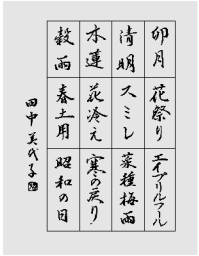 卯月
花祭り
エイプリルフール
清明
スミレ
菜種梅雨
木蓮
花冷え
寒の戻り
穀雨
春土用
昭和の日
田中美代子